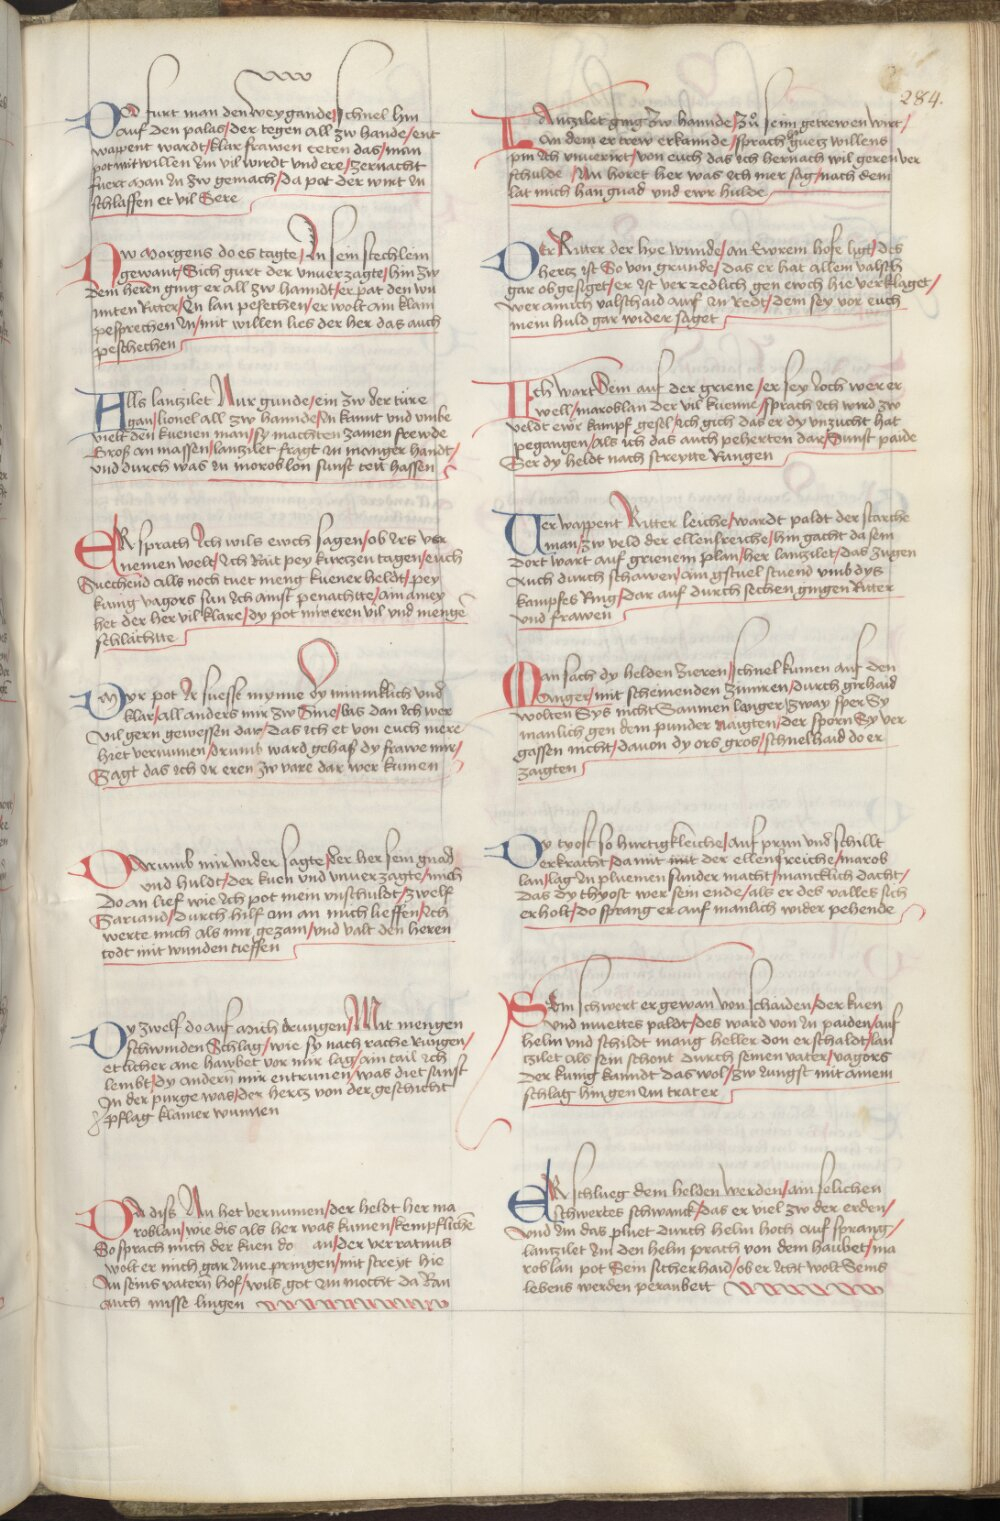 284.
Do furt man den weygande / schnel hin
auf den palas / der tegen all zw hande / ent
wapent wardt / klar frawen teten das / man
pot mit willen Im vil wirdt vnd ere / zernacht
fuert man In zw gemach / da pot der wirt In
schlaffen et vil Sere
Nw morgens do es tagte / In sein stechlein
gewant / Sich gurt der vnuerzagte / hin zw
dem heren ging er all zw hanndt / er pat den wu
nnten Ritter / In lan pesechen / er wolt am klain
pesprechen In / mit willen lies der her das auch
peschechen
Alls lantzilet Nur gunde / ein zw der türe
gan / lionel all zw hannde / In kannt vnd vmbe
vielt den kuenen man / sy machten zamen frewde
Gros an massen / lanzilet fragt In meniger handt /
vnd durch was In moroblon sunst tett hassen
ER sprach Ich wils ewch sagen / ob Irs ver
nemen welt / Ich Rait pey kurczen tagen / euch
Suechend alls noch tuet meng kuener heldt / pey
kunig vagors sun Ich amst penachtte / am amey
het der her vil klare / dy pot mir eren vil vnd menge
schlachtte
Myr pot Ir suesse mynne dy minniklich vnd
klar / all anders mir zw Sinne / was dan Ich wer
Vil gern gewessen dar / das Ich et von euch mere
hiet vernumen / drumb ward gehas dy frawe mir /
Sagt das Ich Ir eren zw vare dar wer kumen
Darumb mir wider sagte / der her sein gnad
vnd huldt / der kuen vnd vnuerzagte / mich
Do an lief wie Ich pot mein vnschuldt / zwelf
Sariand / durch hilf im an mich lieffen / Ich
werte mich als mir gezam / vnd valt den heren
todt mit wunden tieffen
Dy zwelf do auf mich drungen / Mit mengen
schwinden Schlag / wie sy nach rache Rungen /
etlicher ane hawbet vor mir lag / ain tail Ich
lembt / dy andern mir entrunen / was diet sunst
In der purge was / der hertz von der geschicht
pflag klainer wunnen
Do dis Nu het vernumen / der heldt her ma
roblan / wie dis als her was kumen / kempfliche
So sprach mich der kuen do an / der verratnus
wolt er mich gar Inne pringen / mit streyt hie
In seins vatern hof / wils got Im mocht da Ran
auch misse lingen
Lantzilet ging zw hannde / Zu seim getrewen wirt /
An dem er trew erkannde / sprach her guetz willens
pin Ich vnuerirt / von euch das Ich hernach vil geren ver
schulde / Nu horet her was Ich mer sag / nach dem
lat mich han gnad vnd ewr hulde
Der Ritter der hye wunde / an Ewrem hofe ligt / des
hertz ist So von grunde / das er hat allem valsch
gar ob gesiget / er ist verredlich gen ewch hie verklaget /
wer am ich valschaid auf In redt / dem sey vor euch
mein huld gar wider saget
Ich wart Dem auf der griene / er sey Joch wer er
well / maroblan der vil kuenne / sprach Ich wird zw
veldt ewr kampf gesell / Ich gich das er dy vnzucht hat
pegangen / als ich das auch peherten dar / Sunst paide
Ser dy heldt nach streytte Rungen
Uer wappent Ritter leiche / wardt paldt der starche
man / zw veld der ellensreiche / hin gacht da sein
dort wart auf grienem plan / her lanzilet / das zugen
Auch durch schawen / ain gstuel stuend vmb dys
kampfes Ring / dar auf durch sechen gingen Ritter
vnd frawen
Man sach dy helden zieren / schnel kumen auf den
Annger / mit scheinenden zimiren / durch girhaid
wolten Sys nicht Saumen lenger / zway sper Sy
manlich gen dem punder naigten / der sporn Sy ver
gassen nicht / dauon dy ors gros / schnelhaid do er
zaigten
Dy tyost so hurtigkleiche / auf prun vnd schillt
erkracht / da mit mit der ellensreiche / marob
lan / lag In pluemen sunder macht / mancklich dacht /
Das dy thyost wer sein ende / als er des valles sich
erholt / do sprang er auf manlich wider pehende
Sein schwert er gewan von schaiden / der kuen
vnd muettes paldt / des ward von In paiden / auf
helm vnd schildt mang heller don erschaldt / lan
tzilet als sein schont durch seinen vater / vagors
der kunig kanndt das wol / zw Jungst mit ainem
schlag hin gen Im trat er
ER schlueg dem helden werden / ain solichen
schwertes schwanck / das er viel zw der erden /
vnd Im das pluet durch helm hoch auf sprang /
lanzilet Im den helm prach von dem haubet / ma
roblan pot Sein sicherhaid / ob er Icht wolt Seins
lebens werden peraubett